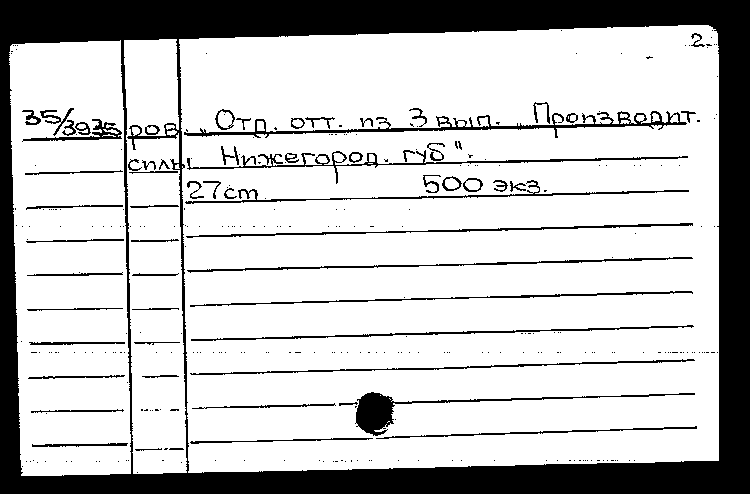 2
35/3935 ров. „Отд. отт. из 3 вып. „Производит.
силы Нижегород. губ".
27cm 500 экз.